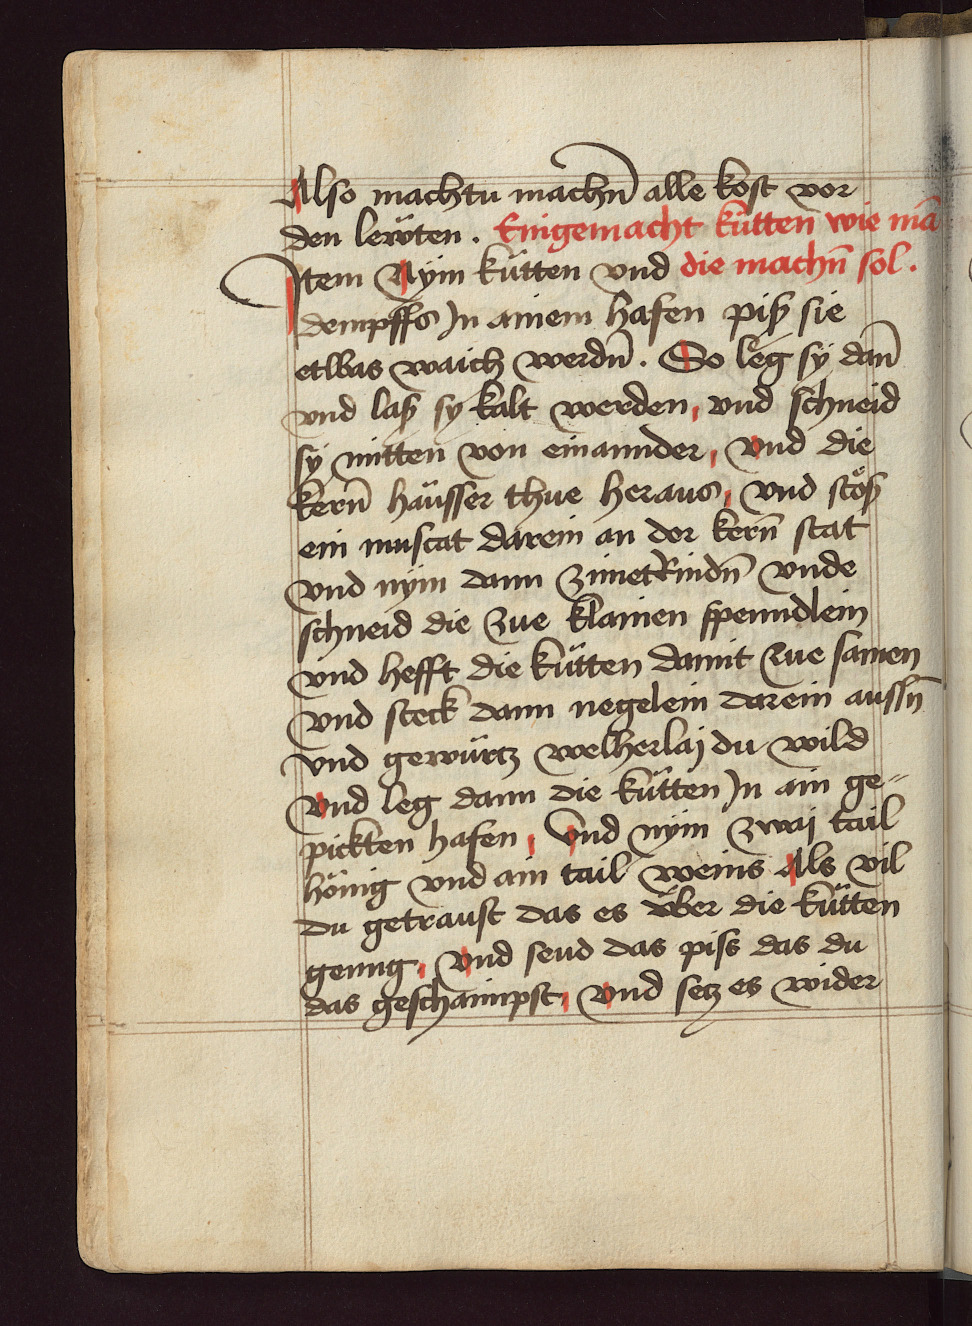 Also machtu machn̄ alle kost vor
den lewten . Eingemacht kütten wie mā
Item Nÿm kütten vnd die machn̄ sol .
dempffs In ainem hafen piß sie
etlbas waich werdn̄ . So leg sÿ dan̄
vnd laß sÿ kalt werden , vnd schneid
sÿ mitten von einannder , vnd die
kern̄ häusser thue heraus , vnd stöß
ein muscat darein an der kern̄ stat
vnd nÿm dann zimetRindn̄ vnde
schneid die zue klainen spenndlein
vnd hefft die kütten damit zue samen
vnd steck dann negelein darein aussn̄
vnd gewürtz welherlaj du wild
vnd leg dann die kütten In ain ge=
pickten hafen , vnd nÿm zwaj tail
hönig vnd ain tail weins Als vil
du getraust das es über die kütten
genug , vnd seud das piss das du
das geschaimpst , vnd setz es wider